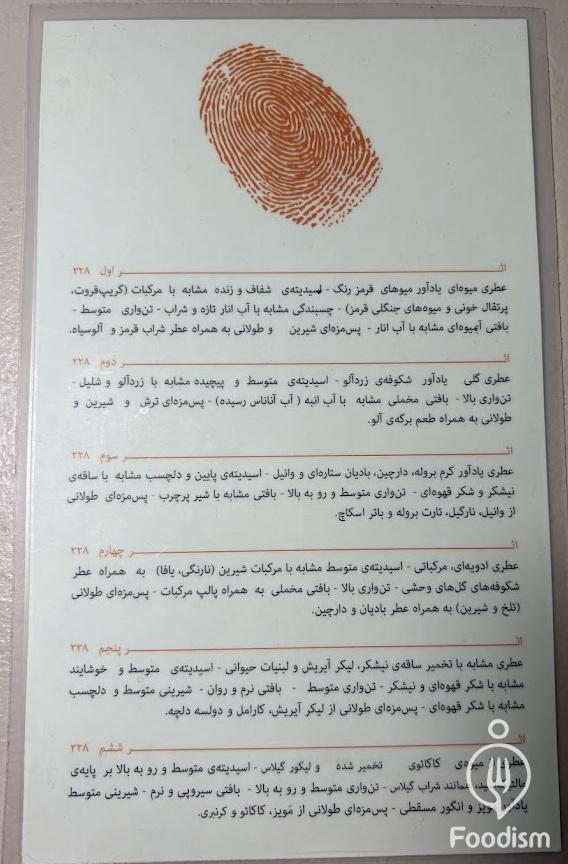 اثـــــر اول ۲۲۸
عطری میوه‌ای یادآور میوهای قرمز رنگ - اسیدیته‌ی شفاف و زنده مشابه با مرکبات (گریپ‌فروت،
پرتقال خونی و میوه‌های جنگلی قرمز) - چسبندگی مشابه با آب انار تازه و شراب - تن‌واری متوسط -
بافتی آبمیوه‌ای مشابه با آب انار - پس‌مزه‌ای شیرین و طولانی به همراه عطر شراب قرمز و آلوسیاه.
اثـــــر دوم ۲۲۸
عطری گلی یادآور شکوفه‌ی زردآلو - اسیدیته‌ی متوسط و پیچیده مشابه با زردآلو و شلیل -
تن‌واری بالا - بافتی مخملی مشابه با آب انبه ( آب آناناس رسیده) - پس‌مزه‌ای ترش و شیرین و
طولانی به همراه طعم برگه‌ی آلو.
اثـــــر سوم ۲۲۸
عطری یادآور کرم بروله، دارچین، بادیان ستاره‌ای و وانیل - اسیدیته‌ی پایین و دلچسب مشابه با ساقه‌ی
نیشکر و شکر قهوه‌ای - تن‌واری متوسط و رو به بالا - بافتی مشابه با شیر پرچرب - پس‌مزه‌ای طولانی
از وانیل، نارگیل، تارت بروله و باتر اسکاچ.
اثـــــر چهارم ۲۲۸
عطری ادویه‌ای، مرکباتی - اسیدیته‌ی متوسط مشابه با مرکبات شیرین (نارنگی، یافا) به همراه عطر
شکوفه‌های گل‌های وحشی - تن‌واری بالا - بافتی مخملی به همراه پالپ مرکبات - پس‌مزه‌ای طولانی
(تلخ و شیرین) به همراه عطر بادیان و دارچین.
اثـــــر پنجم ۲۲۸
عطری مشابه با تخمیر ساقه‌ی نیشکر، لیکر آیریش و لبنیات حیوانی - اسیدیته‌ی متوسط و خوشایند
مشابه با شکر قهوه‌ای و نیشکر - تن‌واری متوسط - بافتی نرم و روان - شیرینی متوسط و دلچسب
مشابه با شکر قهوه‌ای - پس‌مزه‌ای طولانی از لیکر آیریش، کارامل و دولسه دلچه.
اثـــــر ششم ۲۲۸
عطری میوه‌ی کاکائوی تخمیر شده و لیکور گیلاس - اسیدیته‌ی متوسط و رو به بالا بر پایه‌ی
همانند شراب گیلاس - تن‌واری متوسط و رو به بالا - بافتی سیروپی و نرم - شیرینی متوسط
یادآور مویز و انگور مسقطی - پس‌مزه‌ای طولانی از مَویز، کاکائو و کرنبری.
Foodism